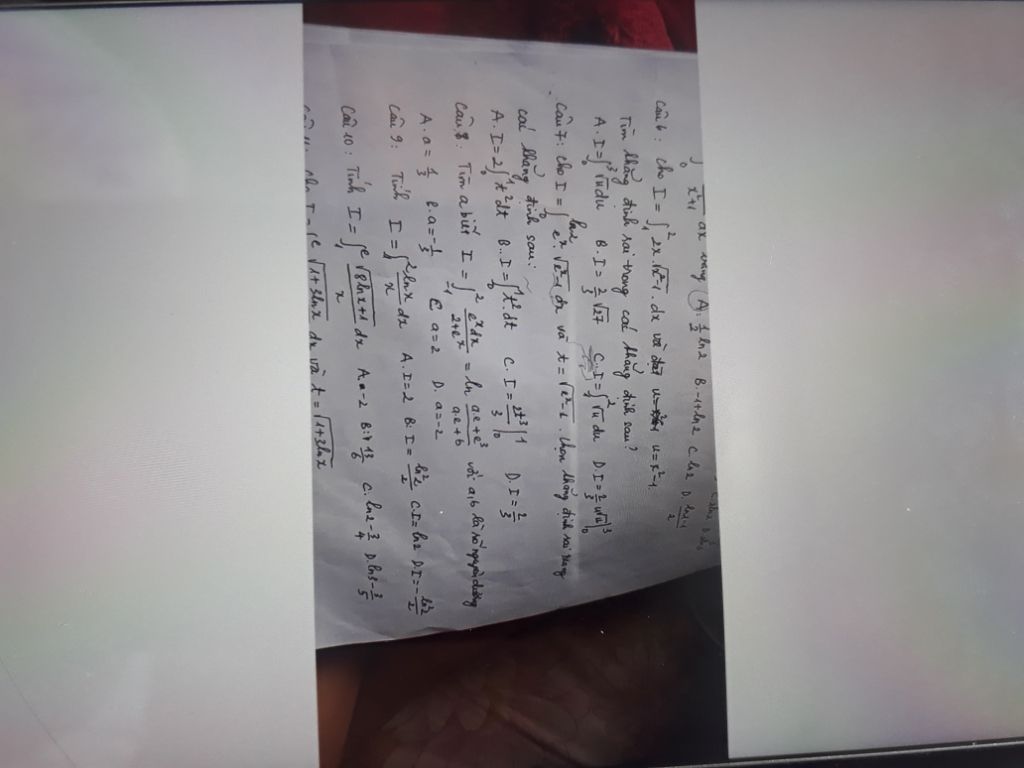 ∫₀ x/(x²+1) dx bằng (A.) ½ ln2 B. -1+ln2 C. ln2 D.
Câu 6: cho I = ∫₁² 2x.√(x²-1) . dx và đặt u = x²-1.
Tìm khẳng định sai trong các khẳng định sau?
A. I = ∫₀³ √u du B. I = 2/3 √27 C. I = ∫₁² √u du D. I = 2/3 u√u |₀³
Câu 7: cho I = ∫₀^(ln2) eˣ.√(eˣ-1) dx và t = √(eˣ-1). chọn khẳng định sai trong
các khẳng định sau:
A. I = 2∫₀¹ t² dt B. I = ∫₀¹ t².dt C. I = 2t³/3 |₀¹ D. I = 2/3
Câu 8: Tìm a biết I = ∫₋₁² eˣdx/(2+eˣ) = ln (ae+e³)/(ae+b) với a,b là số nguyên dương
A. a = 1/3 B. a = -1/3 C a = 2 D. a = -2
Câu 9: Tính I = ∫₁² lnx/x dx A. I = 2 B. I = ln²2/2 C I = ln2 D. I = -ln²2/2
Câu 10: Tính I = ∫₁ᵉ √(8lnx+1)/x dx A. -2 B. 13/6 C. ln2-3/4 D. ln3-3/5
Câu 11: cho I = ∫₁ᵉ √(1+3lnx) dx và t = √(1+3lnx)